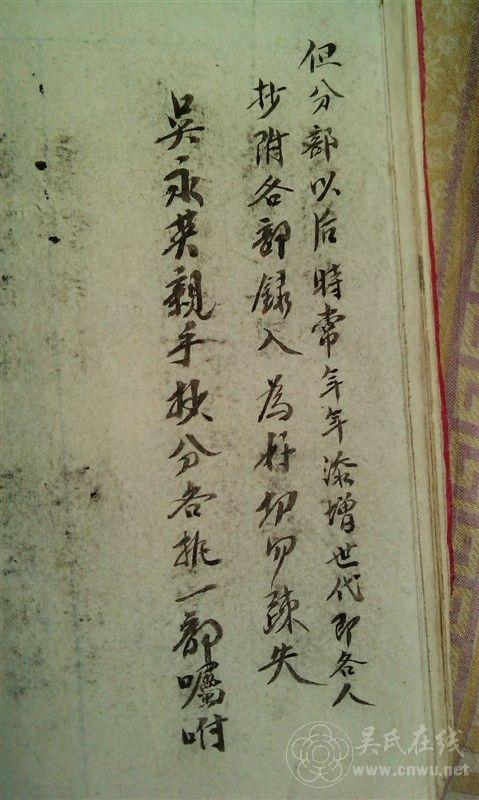 但分部以后時常年年添增世代即各人
抄附各部録入為好切勿疎失
吳永英親手抄分各執一部囑咐
吴氏在线
www.cnwu.net